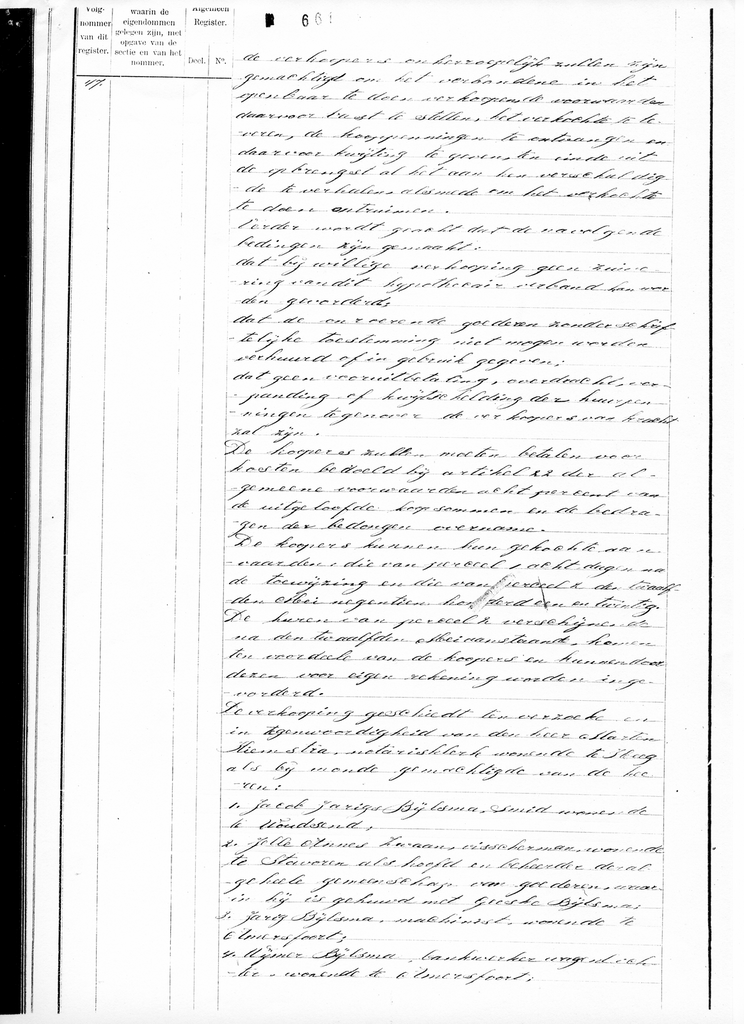 Volg-
nommer
van dit
register.
waarin de
eigendommen
gelegen zijn, met
opgave van de
sectie en van het
nommer.
Algemeen
Register.
Deel. No.
661
47.
de verkoopers onherroepelijk zullen zijn
gemachtigd om het verbondene in het
openbaar te doen verkoopen de voorwaarden
daarvoor vast te stellen, het verkochte te le-
veren, de kooppenningen te ontvangen en
daarvoor kwijting te geven, ten einde uit
de opbrengst al het aan hen verschuldig
-de te verhalen, alsmede om het verkochte
te doen ontruimen.
Verder wordt geacht dat de navolgende
bedingen zijn gemaakt:
dat bij willige verkooping geen zuive-
-ring van dit hypothecair verband kan wor
den gevorderd;
dat de onroerende goederen zonder schrif
-telijke toestemming niet mogen worden
verhuurd of in gebruik gegeven;
dat geen vooruitbetaling, overdracht, ver-
-panding of kwijtschelding der huurpen-
-ningen tegenover de verkoopers van kracht
zal zijn.
De koopers zullen moeten betalen voor
kosten bedoeld bij artikel 22 der al-
-gemeene voorwaarden acht percent van
de uitgeloofde koopsommen en de bedra-
-gen der bedongen overname.
De koopers kunnen hun gekochte aan
vaarden: die van perceel 1 acht dagen na
de toewijzing en die van perceel 2 den twaalf-
den Mei negentien honderd een en twintig.
De huren van perceel 2 verschijnende
na den twaalfden Mei aanstaande, komen
ten voordeele van de koopers en kunnen door
dezen voor eigen rekening worden inge-
-vorderd.
De verkooping geschiedt ten verzoeke en
in tegenwoordigheid van den heer Martin
Hiemstra, notarisklerk wonende te Heeg
als bij monde gemachtigde van de hee-
-ren:
1. Jacob Jarigs Bijlsma, smid wonende
te Woudsend;
2. Jelle Annes Zwaan, visscherman, wonende
te Stavoren als hoofd en beheerder der al
-geheele gemeenschap van goederen, waar-
in hij is gehuwd met Gieske Bijlsma;
3. Jarig Bijlsma, machinist, wonende te
Amersfoort;
4. Wijmer Bijlsma, bankwerker
wonende te Amersfoort;